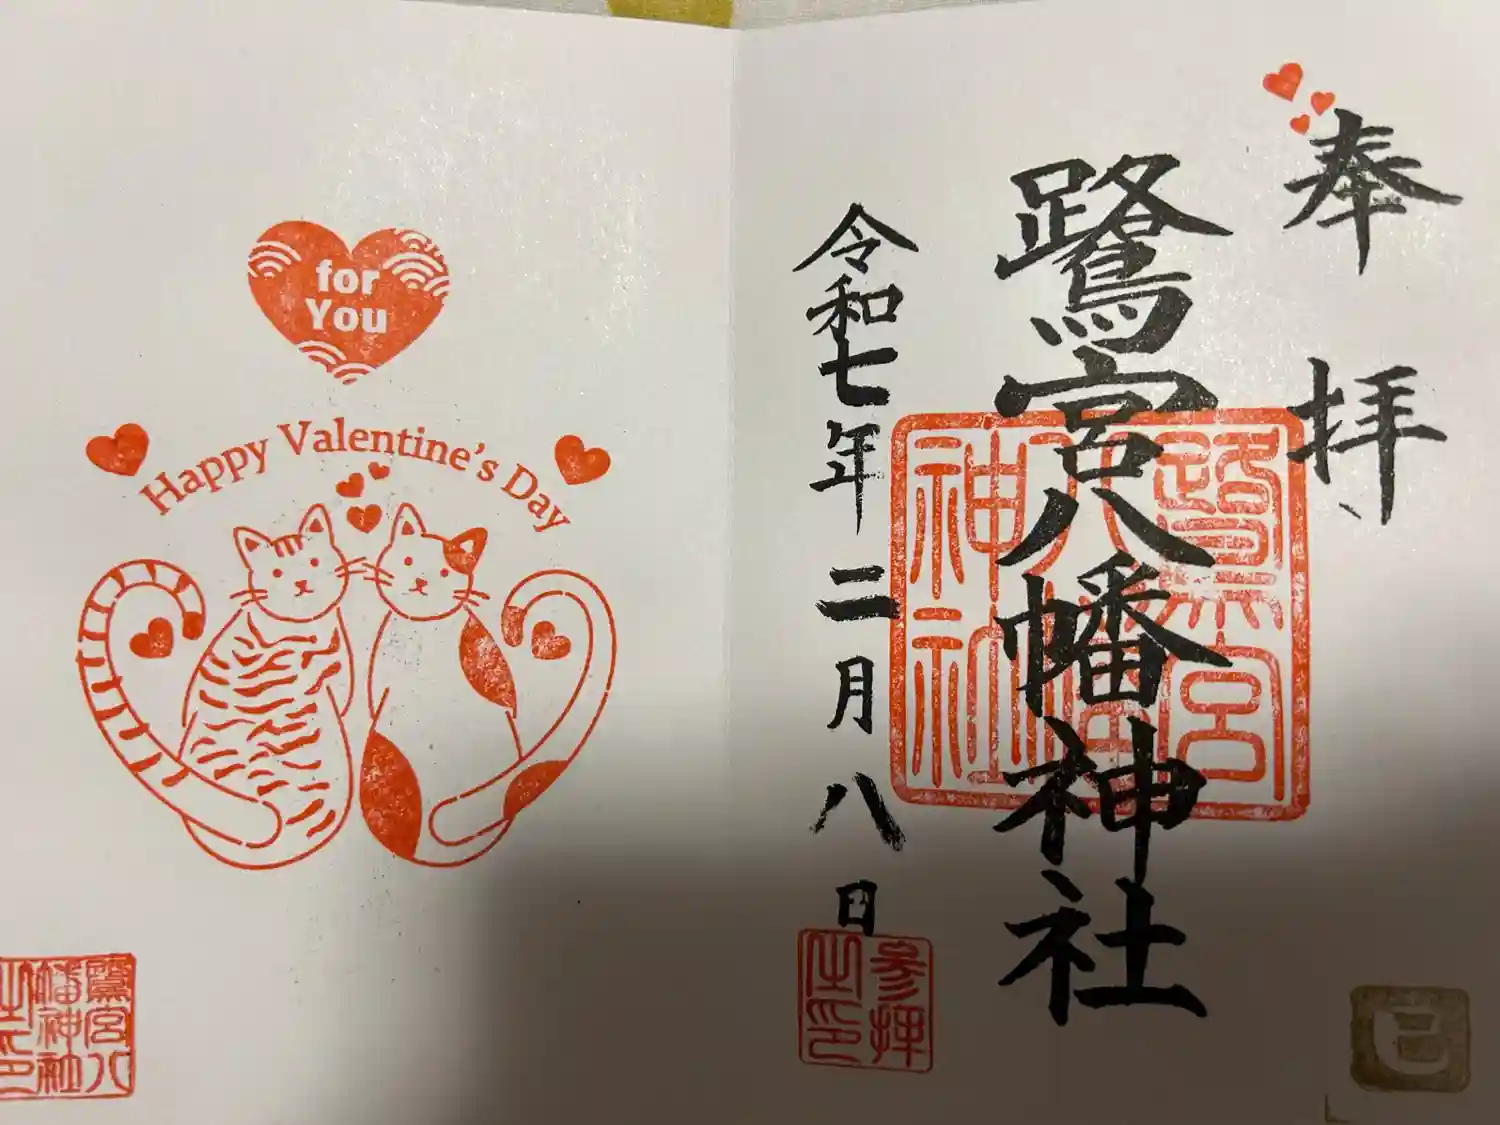 for
You
Happy Valentine's Day
鷺宮八
幡神社
之印
奉拝
鷺宮八幡神社
令和七年二月八日
鷺宮
八幡
神社
参拝
之印
巳